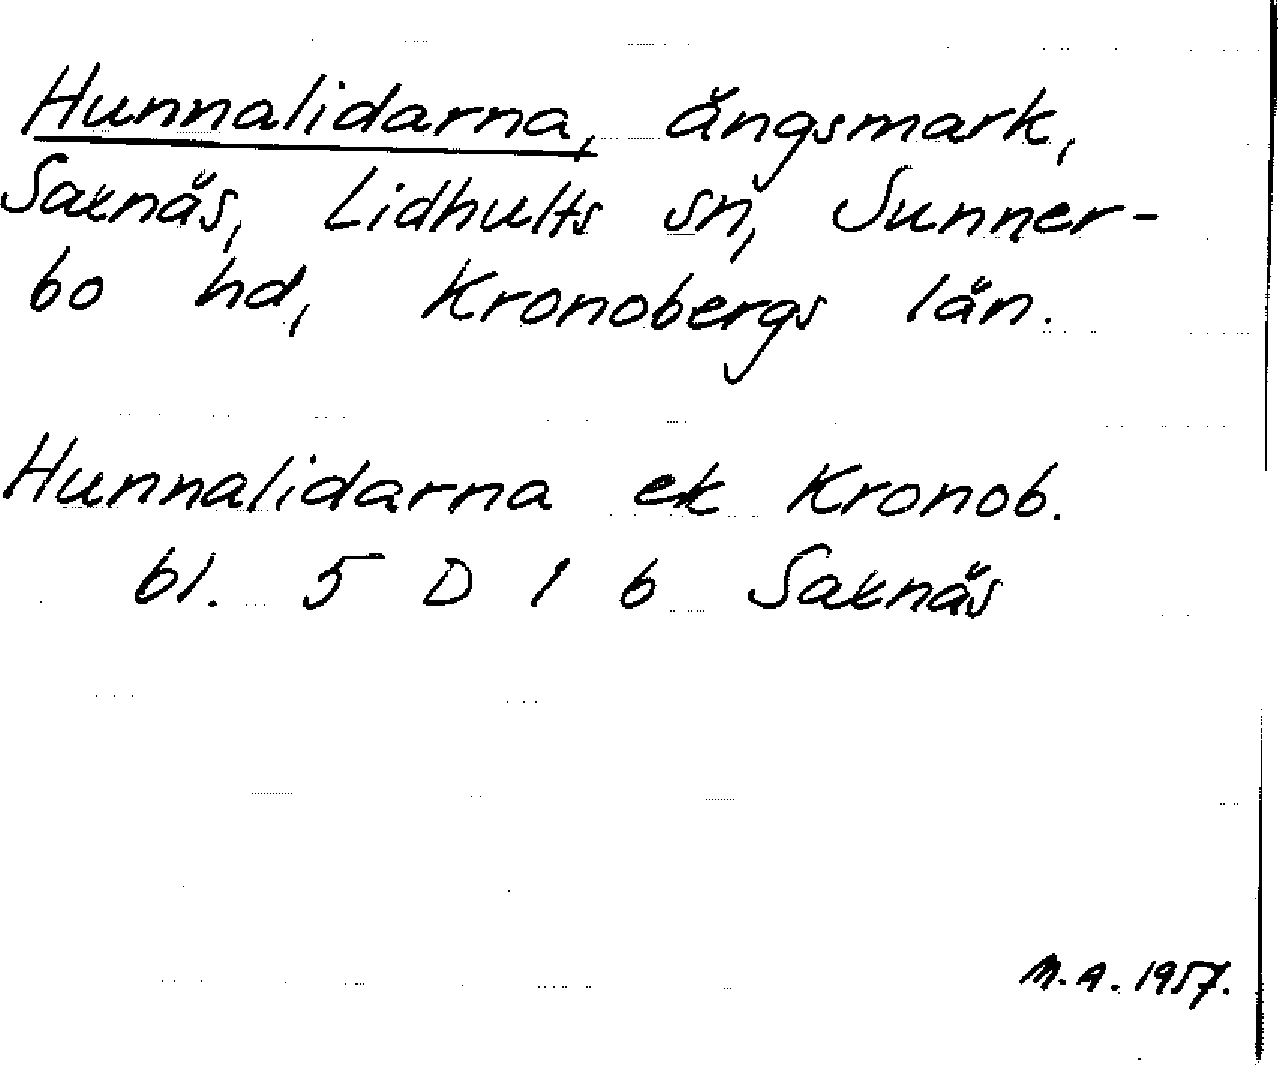 Hunnalidarna, ängsmark,
Saxnäs, Lidhults sn, Sunner-
bo hd, Kronobergs län.
Hunnalidarna ek Kronob.
bl. 5 D 1 b Saxnäs
M.A. 1957.